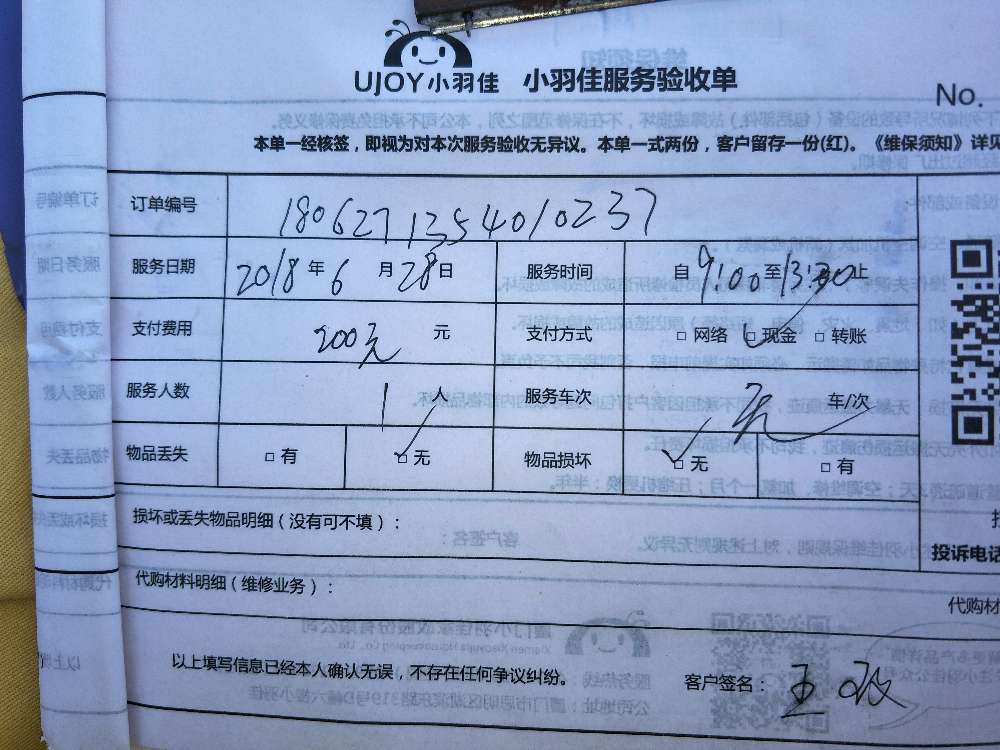 UJOY小羽佳 小羽佳服务验收单
No.
本单一经核签，即视为对本次服务验收无异议。本单一式两份，客户留存一份(红)。《维保须知》详见
订单编号 1806271354010237
服务日期 2018年6月28日 服务时间 自9:00至13:30止
支付费用 200元 元 支付方式 □网络 □现金 □转账
服务人数 1人 服务车次 车/次
物品丢失 □有 □无 物品损坏 □无 □有
损坏或丢失物品明细（没有可不填）：
投诉电话
代购材料明细（维修业务）：
代购材
以上填写信息已经本人确认无误，不存在任何争议纠纷。
客户签名：王